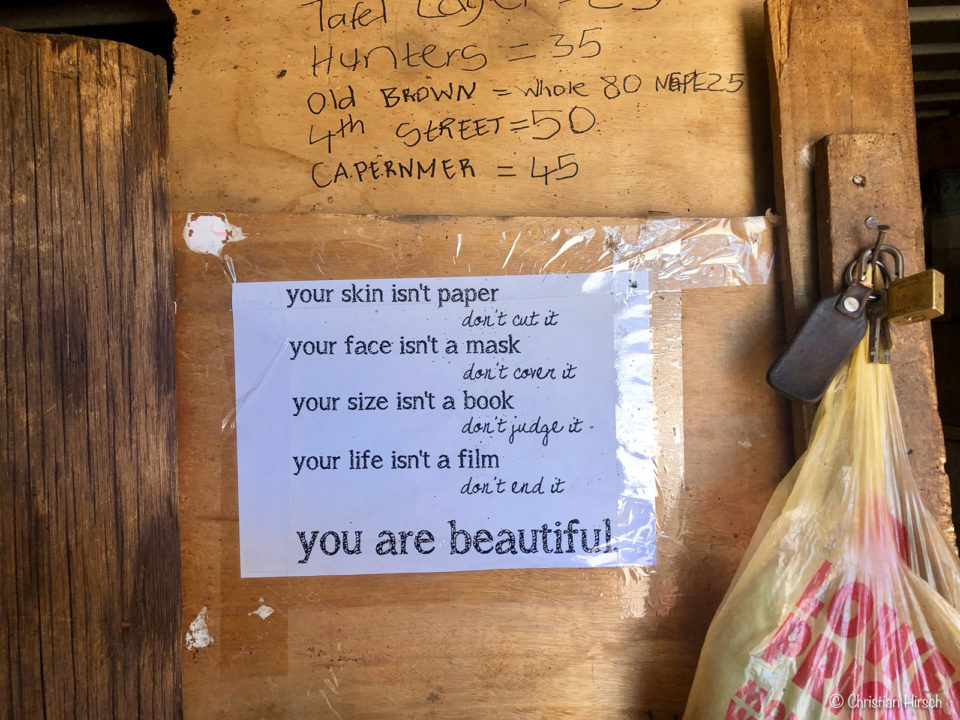 Tafel Lager = 25
Hunters = 35
Old BROWN = Whole 80
4th STREET = 50
CAPERNMER = 45
your skin isn't paper
don't cut it
your face isn't a mask
don't cover it
your size isn't a book
don't judge it.
your life isn't a film
don't end it
you are beautiful.
LOWER
© Christian Hirsch